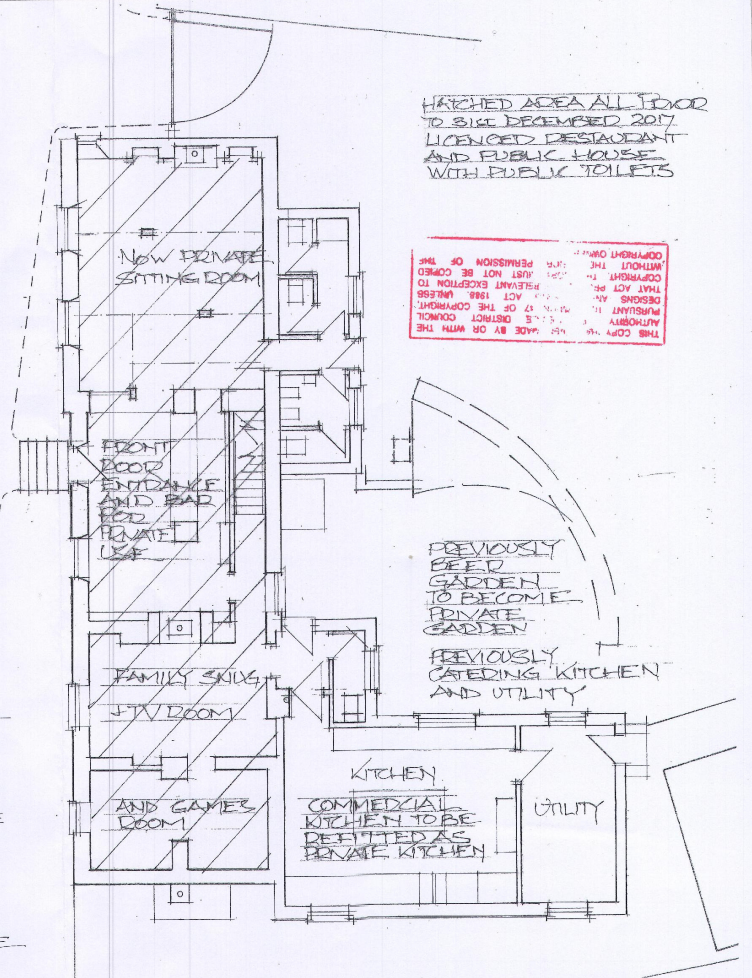 HATCHED AREA ALL PRIOR
TO 31ST DECEMBER 2017
LICENCED RESTAURANT
AND PUBLIC HOUSE
WITH PUBLIC TOILETS
NOW PRIVATE
SITTING ROOM
THIS COPY HAS MADE BY OR WITH THE
AUTHORITY DISTRICT COUNCIL
PURSUANT 17 OF THE COPYRIGHT,
DESIGNS AN ACT 1988. UNLESS
THAT ACT RELEVANT EXCEPTION TO
COPYRIGHT. MUST NOT BE COPIED
WITHOUT THE PERMISSION OF THE
COPYRIGHT OWNER.
FRONT
DOOR
ENTRANCE
AND BAR
FOR
PRIVATE
USE
PREVIOUSLY
BEER
GARDEN
TO BECOME
PRIVATE
GARDEN
PREVIOUSLY
CATERING KITCHEN
AND UTILITY
FAMILY SNUG
+ TV ROOM
AND GAMES
ROOM
KITCHEN
COMMERCIAL
KITCHEN TO BE
REFITTED AS
PRIVATE KITCHEN
UTILITY